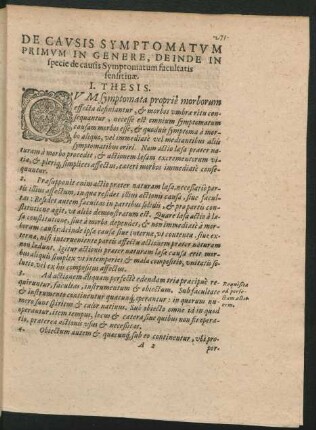 DE CAVSIS SYMPTOMATVM
PRIMVM IN GENERE, DEINDE IN
specie de causis Symptomatum facultatis
sensitiuæ.
I. THESIS.
CVM symptomata propriè morborum
effecta definiantur, & morbos vmbræ ritu con-
sequantur, necesse est omnium symptomatum
causam morbos esse, & quoduis symptoma à mor-
bo aliquo, vel immediatè vel mediantibus aliis
symptomatibus oriri. Nam actio læsa præter na-
turam à morbo procedit, & actionem læsam excrementorum vi-
tia, & pleriq, simplices affectus, cæteri morbos immediatè conse-
quuntur.
2. Præsupponit enim actio præter naturam læsa necessariò par-
tis illius affectum, in qua residet illius actionis causa, siue facul-
tas: Residet autem facultas in partibus solidis, & pro partis con-
stitutione agit, vt aliâs demonstratum est. Quare læsa actio à læ-
sa constitutione, siue à morbo dependet, & non immediatè à mor-
borum causis:
nisi interueniente partis affectu actionem præter naturam
non lædunt. Igitur actionis præter naturam læsæ causa erit mor-
bus aliquis simplex vt intemperies & mala compositio, vnitatis so-
luta, vel ex his complicitus affectus.
3. Ad actionem aliquam perfectè edendam tria præcipuè re-
quiruntur, facultas, instrumentum & obiectum. Sub facultate
& instrumento continentur quæcunq,
Requisita
ad perfe-
ctam actio-
nem.
obseruat, item tempus, locus & cætera, sine quibus non fit opera-
tio, præterea actionis vsus & necessitas.
4. Obiectum autem & quæcunq, sub eo continentur, vti pro-
A 2
per-